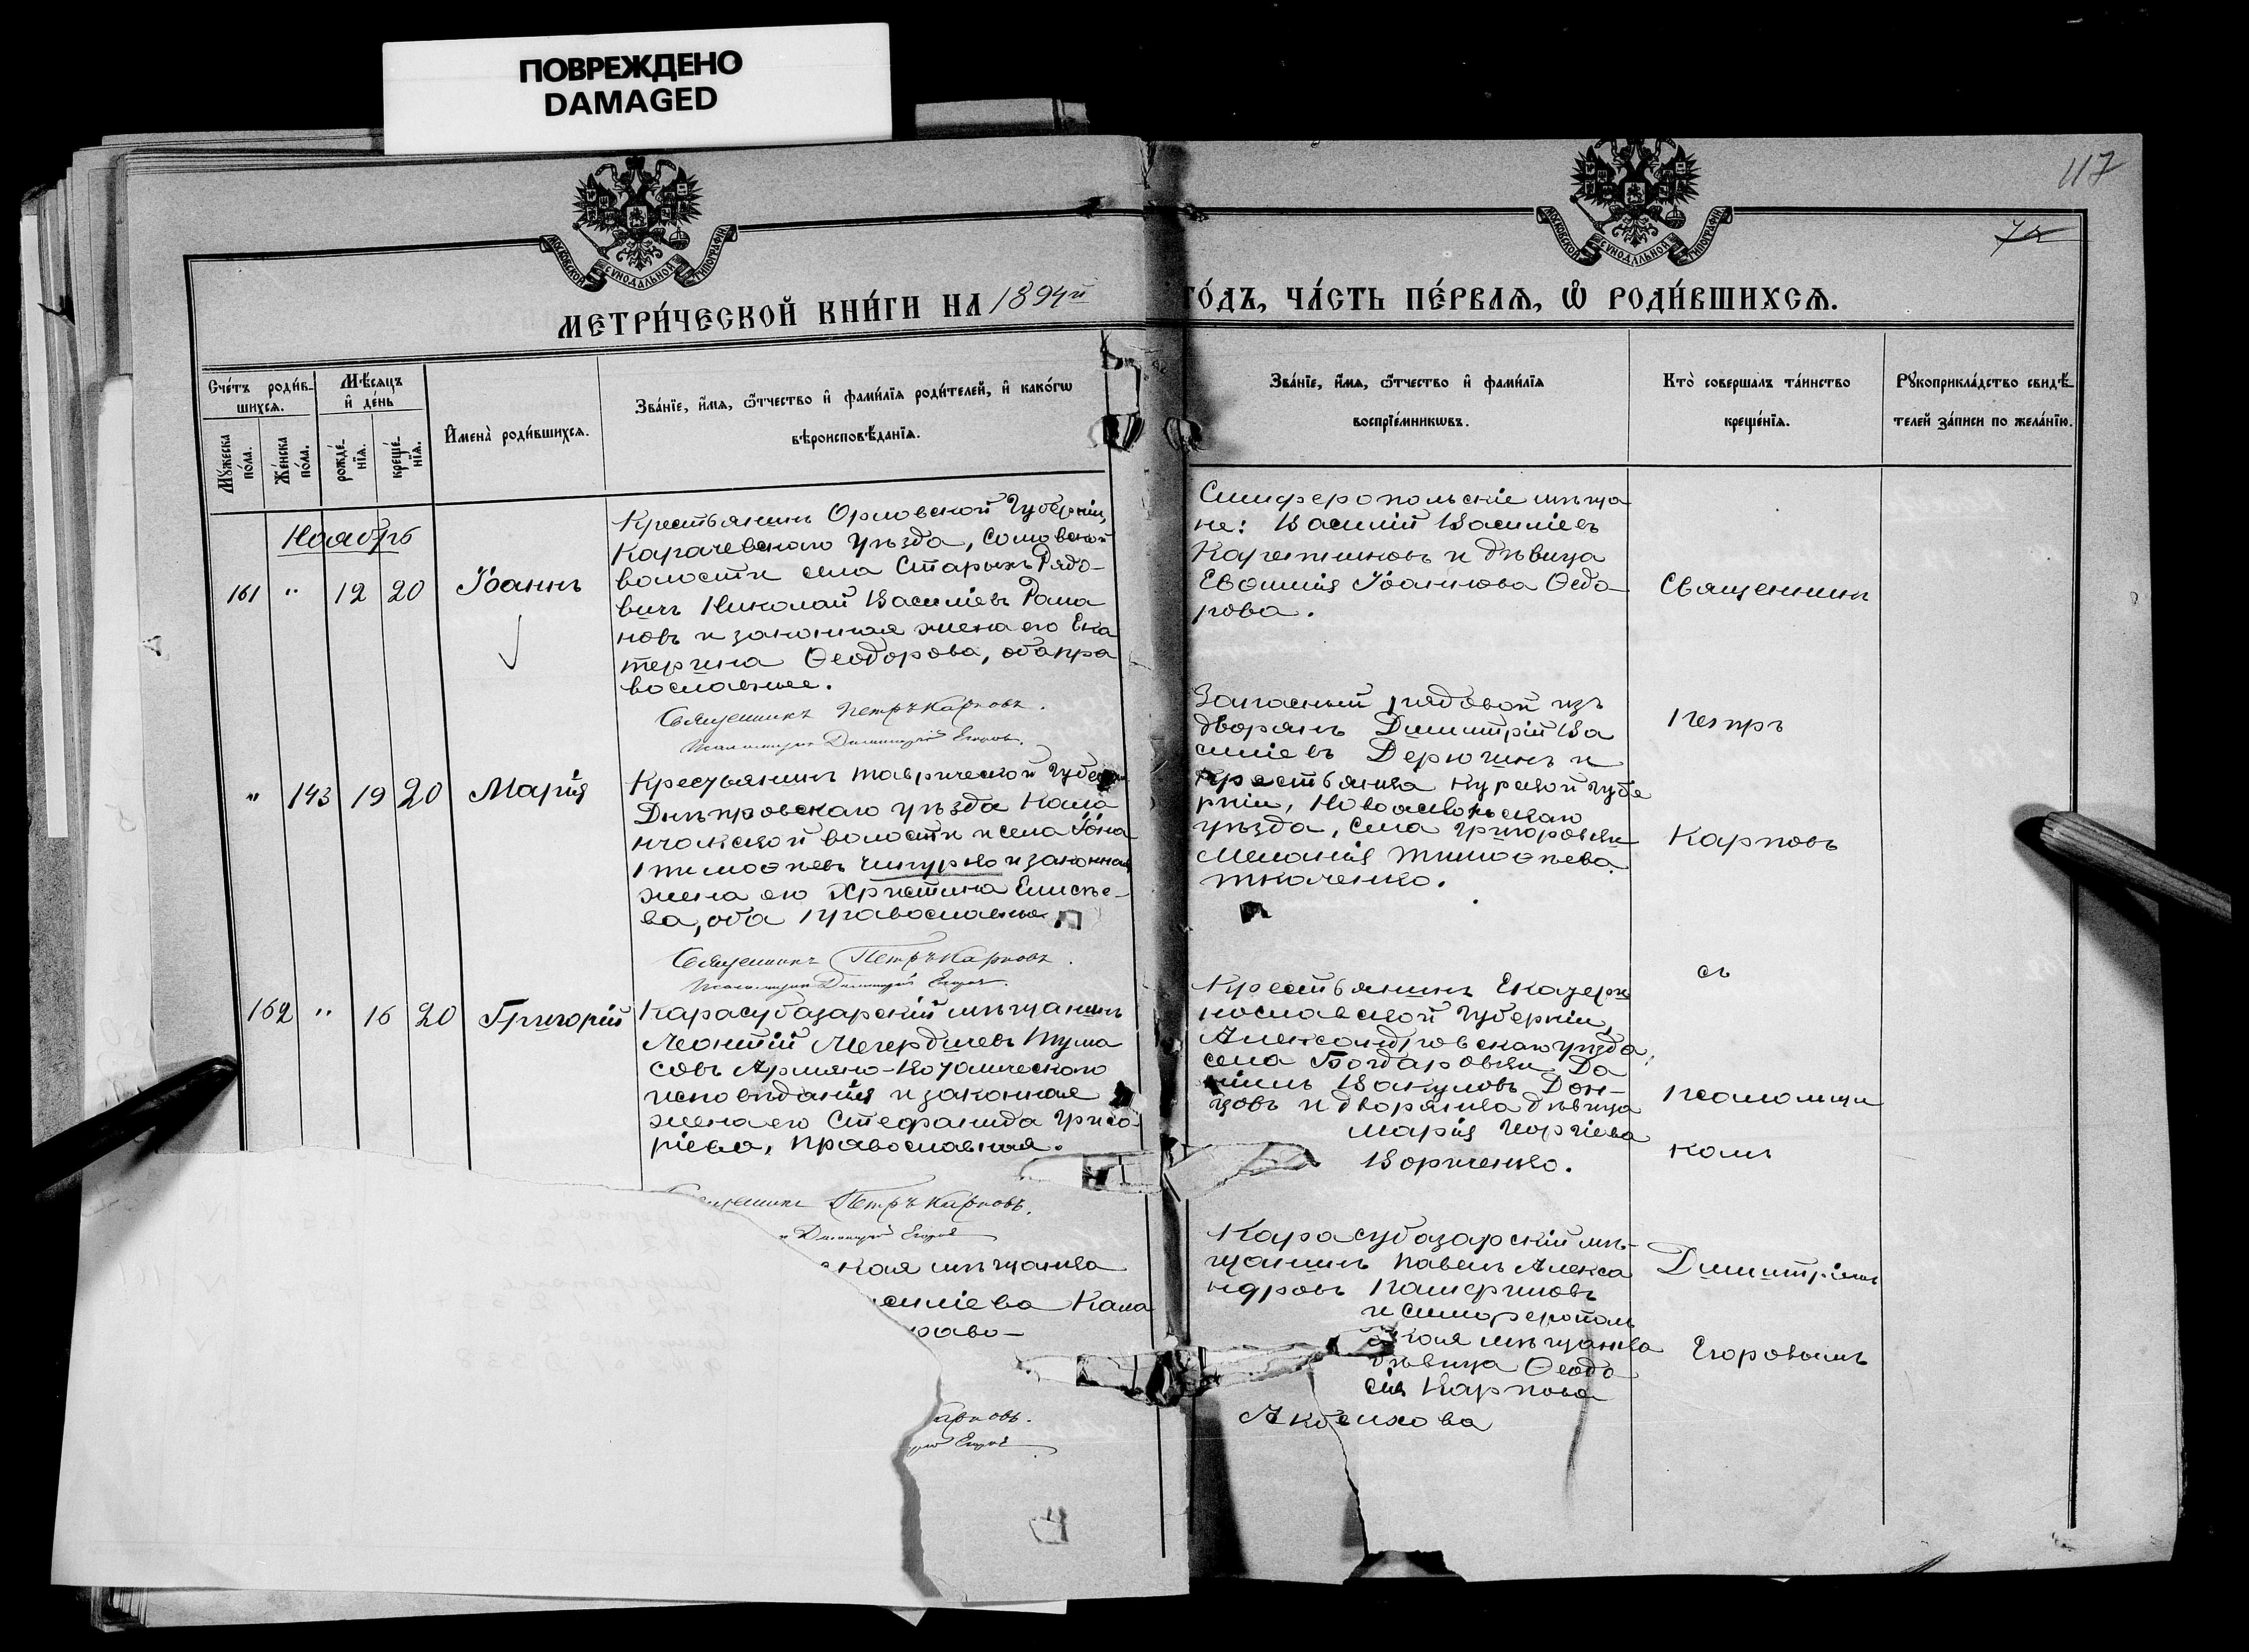 ПОВРЕЖДЕНО
DAMAGED
117
МОСКОВСКОЙ СѴНОДАЛЬНОЙ ТИПОГРАФІИ
МОСКОВСКОЙ СѴНОДАЛЬНОЙ ТИПОГРАФІИ
МЕТРИ́ЧЕСКОЙ КНИ́ГИ НА 1894й
ГО́ДЪ, ЧА́СТЬ ПЕ́РВАѦ, Ѡ҆ РОДИ́ВШИХСѦ.
Сче́тъ роди́в-
шихсѧ.
Мѣ́сѧцъ
и҆ де́нь
Мꙋ́жеска
по́ла.
Же́нска
по́ла.
рожде́-
нїѧ.
креще́-
нїѧ.
И҆мена̀ роди́вшихсѧ.
Зва́нїе, и҆́мѧ, ѻ҆́тчество и҆ фамѝлїѧ роди́телей, и҆ како́гѡ
вѣроисповѣ́данїѧ.
Зва́нїе, и҆́мѧ, ѻ҆́тчество и҆ фами́лїѧ
воспрїе́мникѡвъ.
Кто̀ соверша́лъ та́инство
креще́нїѧ.
Рꙋкоприкла́дство свидѣ́-
телей за́писи по жела́нїю.
Ноябрь
161 " 12 20 Іоаннъ
Крестьянинъ Орловской Губерніи,
Карачевскаго уѣзда, Сомовской
волости села Старыхъ Рядо-
вичъ Николай Василіевъ Рома
новъ и законная жена его Ека
терина Ѳеодорова, оба пра
вославные.
Священникъ Петръ Карповъ.
Псаломщикъ Димитрій Егоровъ.
Симферопольскіе мѣща
не: Василій Василіевъ
и дѣвица
Евѳимія Іоаннова Ѳедо
рова.
Священникъ
" 143 19 20 Марія
Крестьянинъ Таврической Губерн
Днѣпровскаго уѣзда Кала
нчакской волости и села Іона
Тимоѳѣевъ Чигурко и законная
жена его Христина Елисѣе-
ва, оба православные
Священникъ Петръ Карповъ.
Псаломщикъ Димитрій Егоровъ.
Запасный рядовой изъ
дворянъ Димитрій Ва
силіевъ Дерюгинъ и
крестьянка Курской губе
рніи, Новооскольскаго
уѣзда, села Григоровки
Меланія Тимоѳѣева
Ткаченко.
Петръ
Карповъ
съ
162 " 16 20 Григорій
Карасубазарскій мѣщанинъ
Леонтій Мегердичевъ Тума
совъ Армяно-Католическаго
исповѣданія и законная
жена его Стефанида Григо
ріева, православная.
Священникъ Петръ Карповъ.
Димитрій Егоровъ
Крестьянинъ Екатери
нославской губерніи,
Александровскаго уѣзда,
села Богдаровки Да
ніилъ Вакуловъ Дон-
цовъ и дворянка дѣвица
Марія Георгіева
Борченко.
Псаломщи
комъ
ская мѣщанка
силіева Кала
раво-
арповъ.
Егоровъ
Карасубазарскій мѣ-
щанинъ Павелъ Алекса
ндровъ
и симферополь
ская мѣщанка
дѣвица Ѳеодо
сія Карпова
Акбенхова
Димитріемъ
Егоровымъ